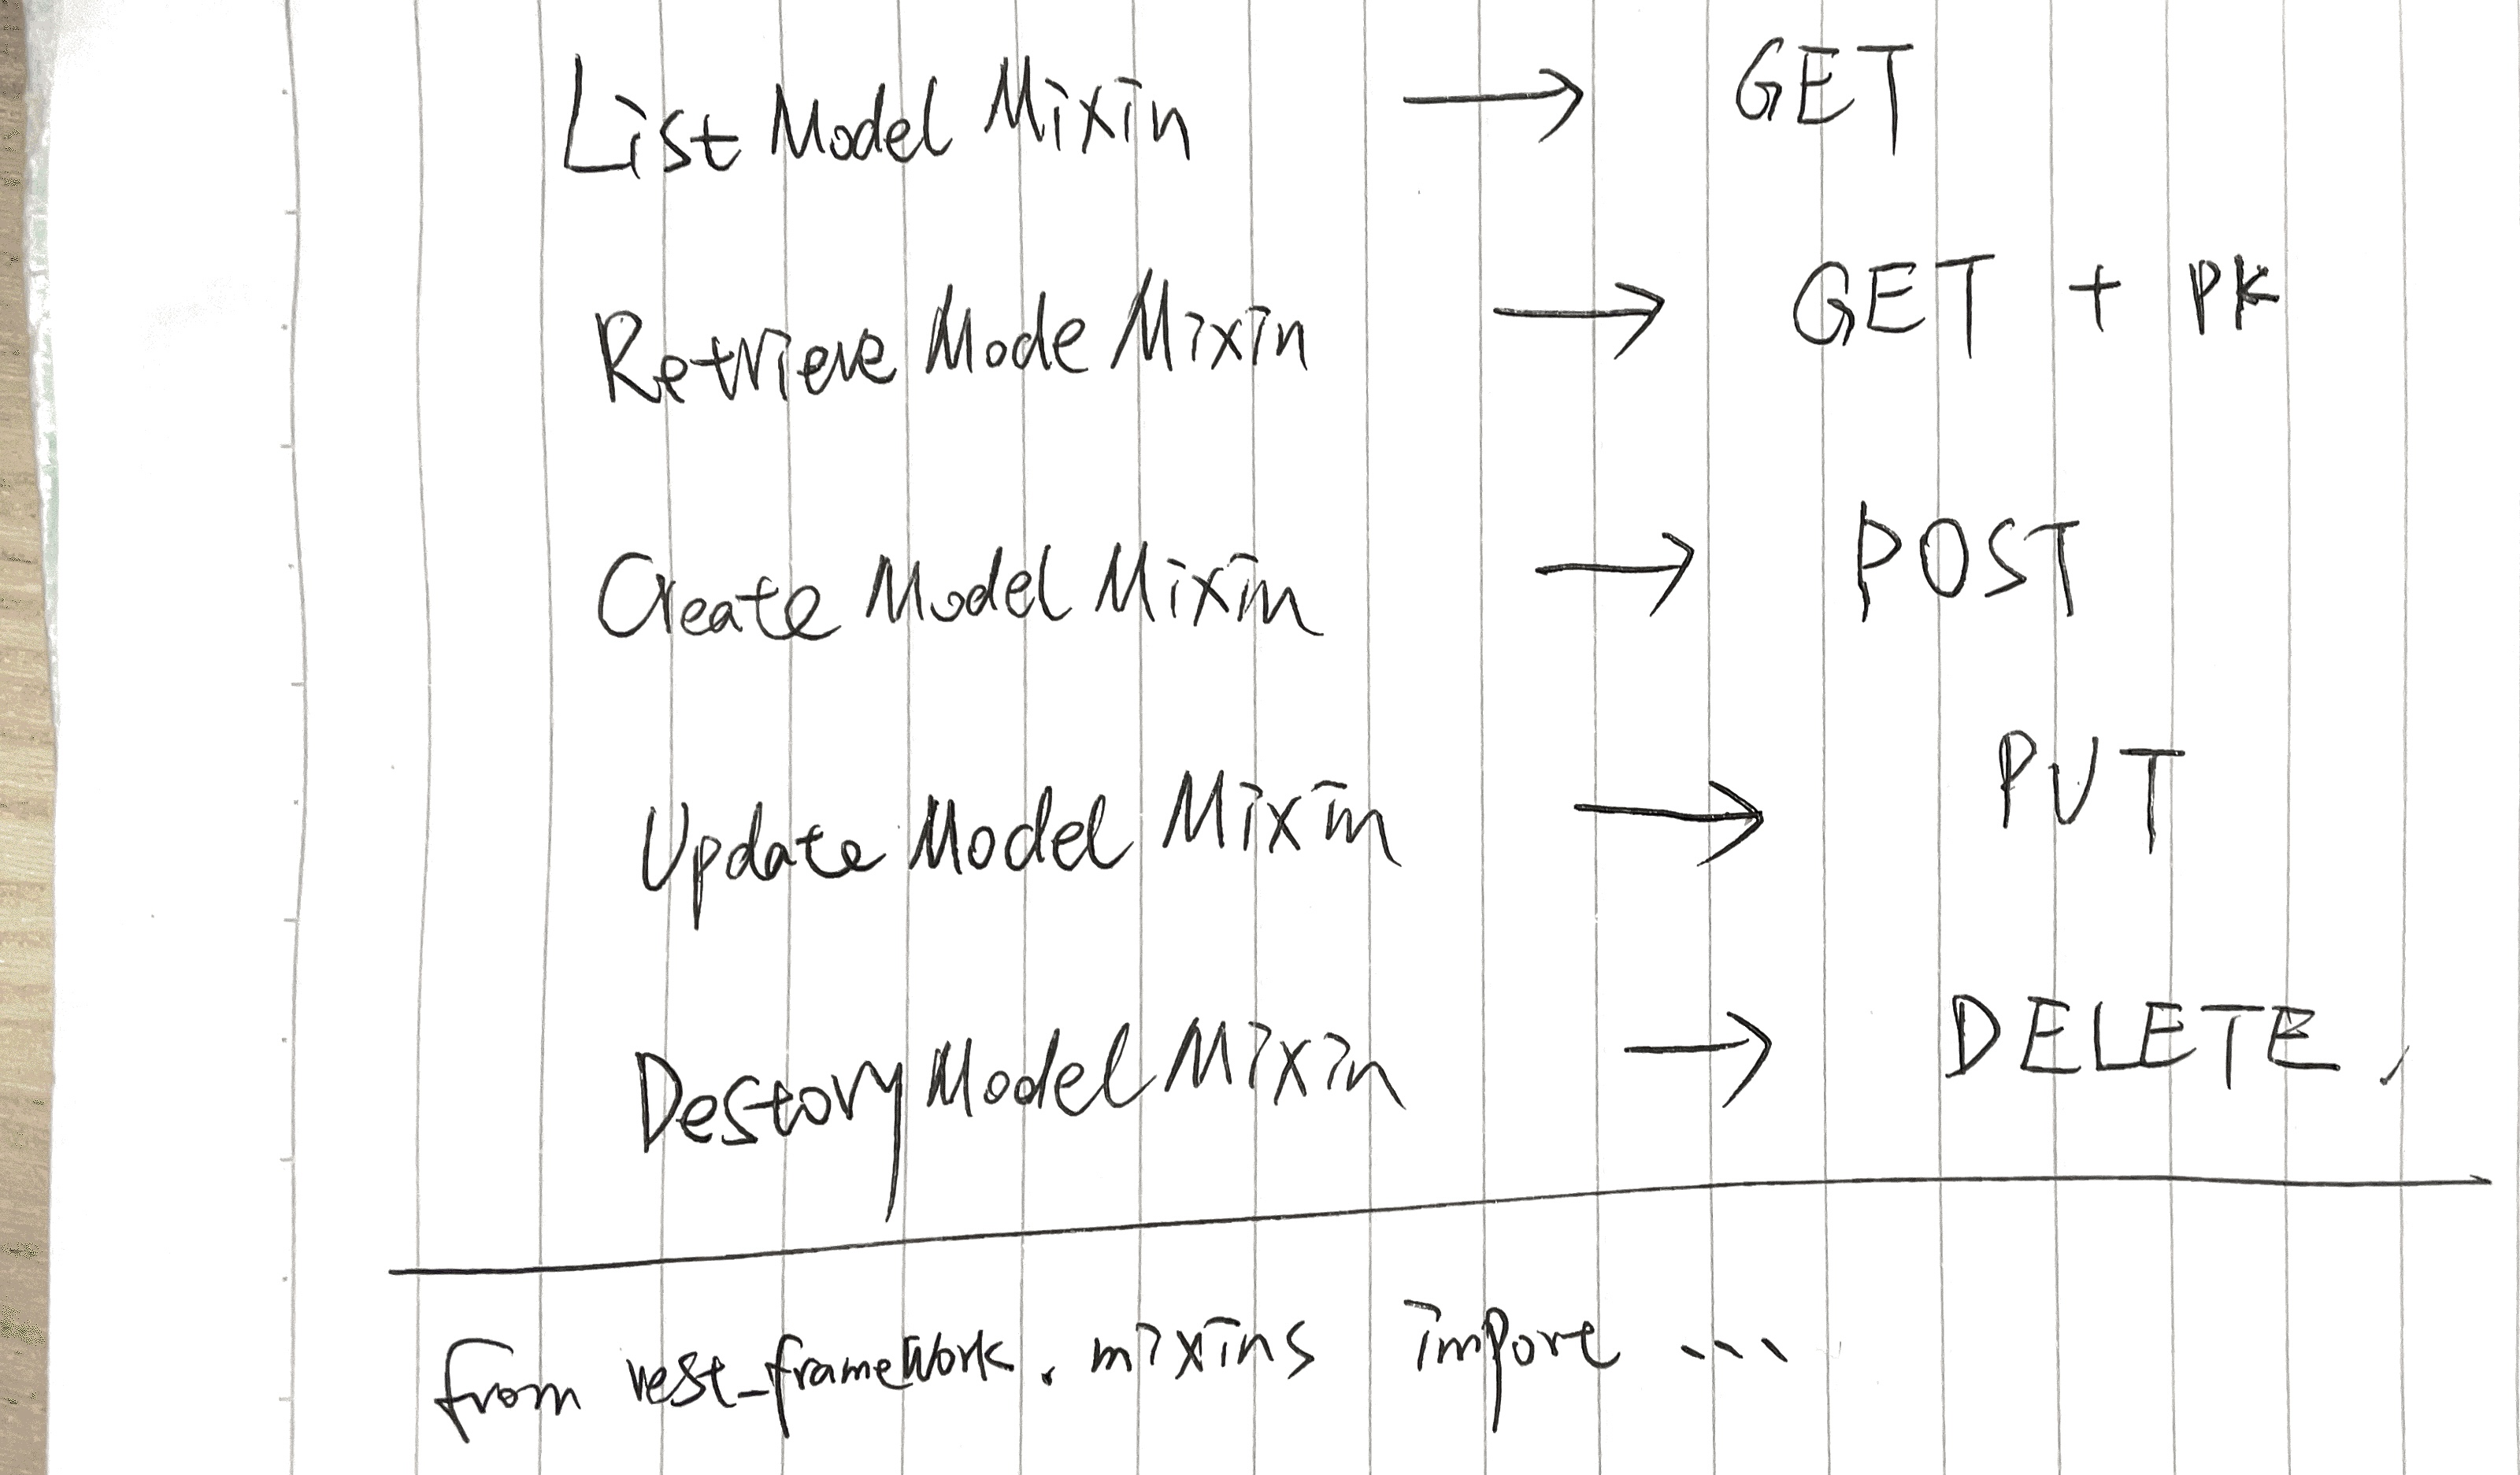 List Model Mixin → GET
Retrieve Mode Mixin → GET + PK
Create Model Mixin → POST
Update Model Mixin → PUT
Destory Model Mixin → DELETE.
from rest_framework.mixins import ...